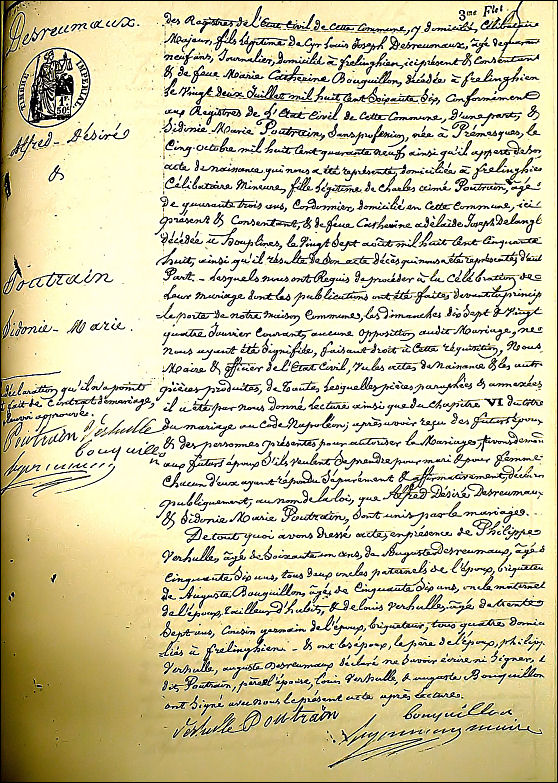 3me Flet
Desreumaux
Alfred-Désiré
&
Poutrain
Sidonie-Marie.
TIMBRE IMPERIAL
1F 50c
déclaration qu'il n'a point
été fait de Contrat de mariage,
approuvée.
Poutrain Verhulle
bouquillon
des Registres de l'Etat Civil de Cette Commune, y domicilié, Célibataire
Majeur, fils légitime de Cyr Louis Joseph Desreumaux, âgé de quarante
neuf ans, Journalier, domicilié à frelinghien, ici présent & Consentant
& de feue Marie Catherine Bouquillon, décédée à frelinghien
le Vingt Deux Juillet mil huit Cent Soixante Six, Conformément
aux Registres de l'Etat Civil de Cette Commune, d'une part, &
Sidonie Marie Poutrain, Sans profession, née à Prémesques, le
Cinq octobre mil huit Cent quarante neuf ainsi qu'il appert de son
acte de naissance qui nous a été représenté, domiciliée à frelinghien
Célibataire Mineure, fille légitime de Charles aimé Poutrain, âgé
de quarante trois ans, Cordonnier, domicilié en Cette Commune, ici
présent & Consentant, & de feue Catherine adélaïde Joseph Delangh
décédée à houplines, le Vingt Sept août mil huit Cent Cinquante
huit, ainsi qu'il résulte de Son acte de décès qui nous a été représenté, d'autre
Part. - Lesquels nous ont Requis de procéder à la Célébration de
leur mariage dont les publications ont été faites devant la principale
porte de notre maison Commune, les dimanches dix Sept & Vingt
quatre Janvier Courant, aucune opposition audit Mariage, ne
nous ayant été Signifiée, faisant droit à Cette réquisition, Nous
Maire & officier de l'Etat Civil, Vu les actes de Naissance & les autres
pièces produites, de Toutes, lesquelles pièces paraphées & annexées
il a été par nous donné Lecture ainsi que du Chapitre VI du titre
du mariage au Code Napoléon; après avoir reçu des futurs époux
& des personnes présentes pour autoriser le Mariage, avons demandé
aux futurs époux S'ils Veulent Se prendre pour mari & pour femme
Chacun d'eux ayant répondu Séparément & affirmativement, déclarons
publiquement, au nom de la loi, que Alfred Désiré Desreumaux
& Sidonie Marie Poutrain, Sont unis par le mariage.
De tout quoi avons dressé acte, en présence de Philippe
Verhulle, âgé de Soixante un ans, de Auguste Desreumaux, âgé de
Cinquante Six ans, tous deux oncles paternels de l'époux, briqueteurs
de Auguste Bouquillon, âgé de Cinquante Six ans, oncle maternel
de l'époux, tailleur d'habits, & de louis Verhulle, âgé de trente
Sept ans, Cousin germain de l'époux, briqueteur, tous quatre domici
liés à frelinghien. - & ont les époux, le père de l'époux, philippe
Verhulle, auguste Desreumaux déclaré ne Savoir écrire ni Signer, &
dit, Poutrain, père de l'épouse, louis Verhulle, & auguste Bouquillon
ont Signé avec Nous le présent acte après lecture.
Verhulle Poutrain bouquillon
maire